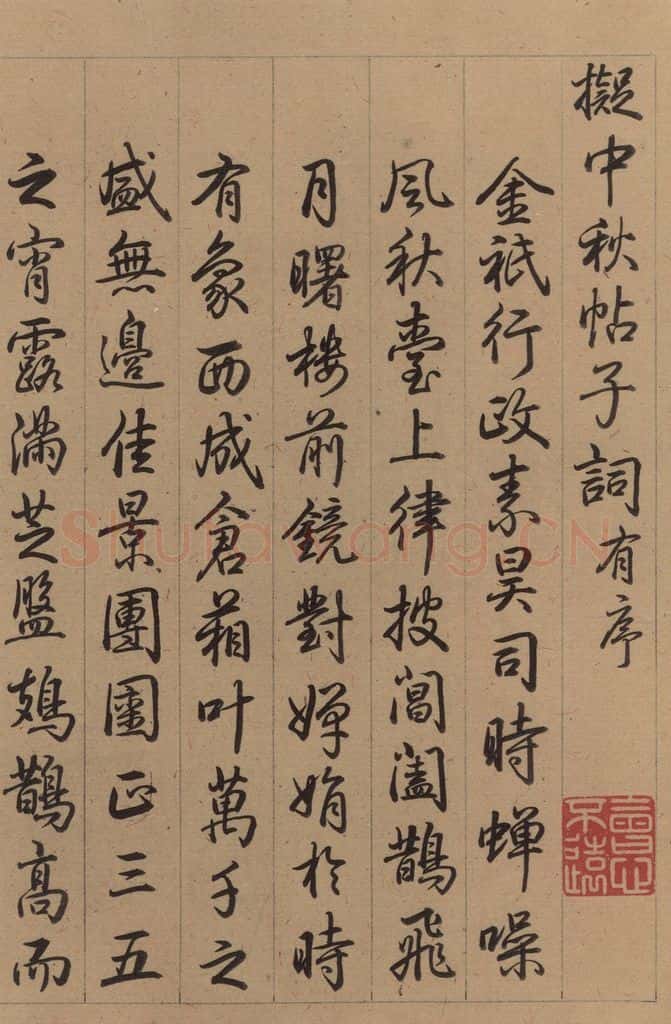 擬中秋帖子詞有序
金祇行政素昊司時蟬噪
風秋臺上律披閶闔鵲飛
月曙樓前鏡對嬋娟於時
有象西成倉箱叶萬千之
盛無邊佳景團圞正三五
之宵露滿芝盤鳷鵲高而
會心不遠
Shufawang.CN